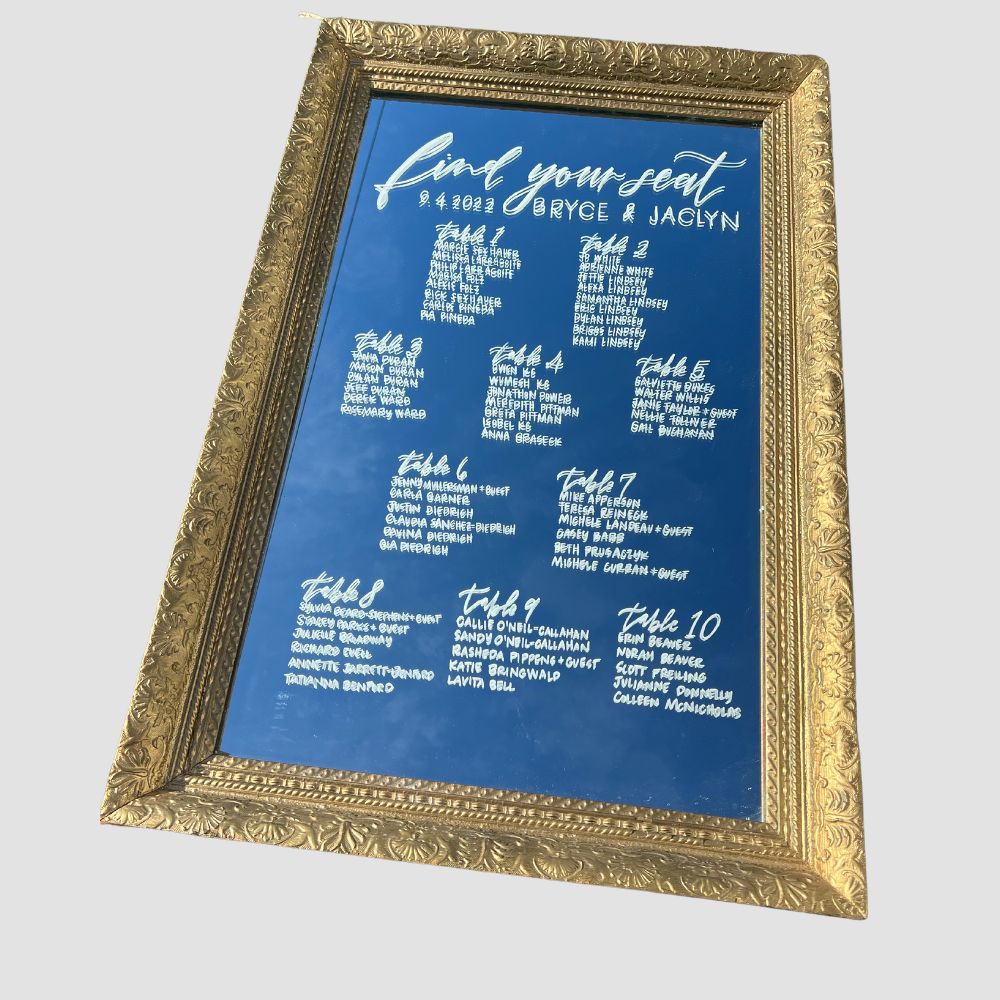 find your seat
9.4.2022 BRYCE & JACLYN
table 1
MARGIE SEXHAUER
MELISSA LARRAGOITE
PHILIP LARRAGOITE
MARISA FOLZ
ALEXIS FOLZ
RICK SEXHAUER
CARLOS PINEDA
PIA PINEDA
table 2
JO WHITE
ADRIENNE WHITE
JETTIE LINDSEY
ALEXA LINDSEY
SAMANTHA LINDSEY
ERIC LINDSEY
DYLAN LINDSEY
BRIGGS LINDSEY
KAMI LINDSEY
table 3
TANIA DURAN
MASON DURAN
DYLAN DURAN
JEFF DURAN
DEREK WARD
ROSEMARY WARD
table 4
OWEN KG
WUMESH KG
JONATHON POWER
MEREDITH PITTMAN
GRETA PITTMAN
ISOBEL KG
ANNA GRASECK
table 5
GALVIETTE DUKES
WALTER WILLIS
JANIE TAYLOR + GUEST
NELLIE TOLLIVER
GAIL BUCHANAN
table 6
JENNY MULLERSMAN + GUEST
CARLA GARNER
JUSTIN DIEDRICH
CLAUDIA SANCHEZ-DIEDRICH
DAVINA DIEDRICH
GIA DIEDRICH
table 7
MIKE APPERSON
TERESA REINECK
MICHELE LANDEAU + GUEST
CASEY BABB
BETH PRUSACZYK
MICHELE CURRAN + GUEST
table 8
SYLVIA BEARD-STEPHENS + GUEST
STACEY PARKS + GUEST
JULIEUS BROADWAY
RICHARD EVELL
ANNETTE JARRETT-BENFORD
TATIANNA BENFORD
table 9
CALLIE O'NEIL-CALLAHAN
SANDY O'NEIL-CALLAHAN
RASHEDA PIPPENS + GUEST
KATIE BRINGWALD
LAVITA BELL
table 10
ERIN BEAVER
NORAH BEAVER
SCOTT FREILING
JULIANNE DONNELLY
COLLEEN McNICHOLAS